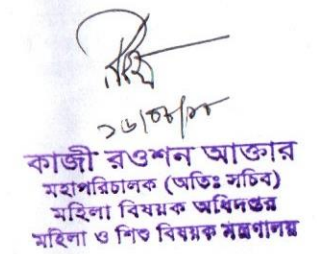 কাজী রওশন আক্তার
মহাপরিচালক (অতিঃ সচিব)
মহিলা বিষয়ক অধিদপ্তর
মহিলা ও শিশু বিষয়ক মন্ত্রণালয়